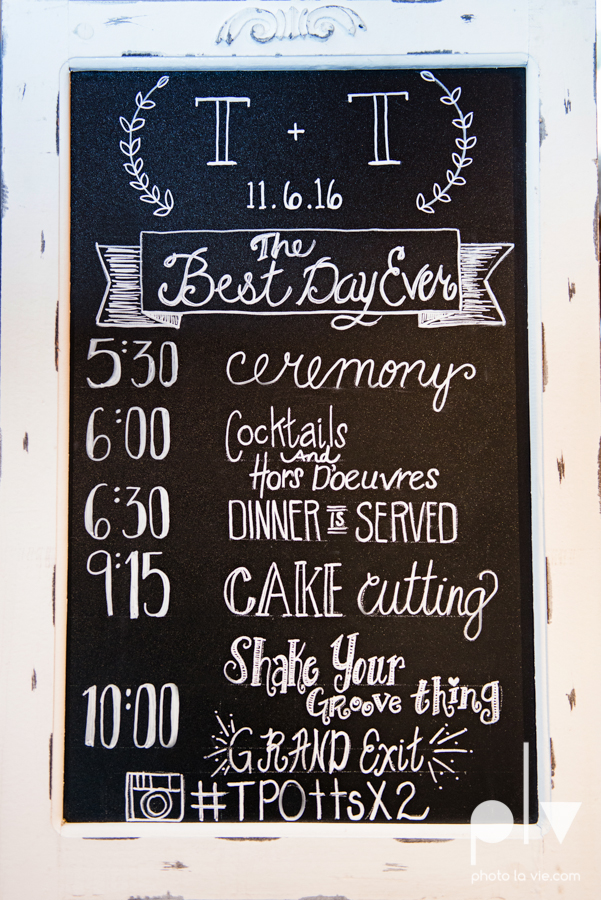 T + T
11.6.16
The
Best Day Ever
5:30 ceremony
6:00 Cocktails
And
Hors D'oeuvres
6:30 DINNER IS SERVED
9:15 CAKE cutting
Shake Your
Groove thing
10:00 GRAND Exit
#TPOttsX2
plv
photo la vie.com